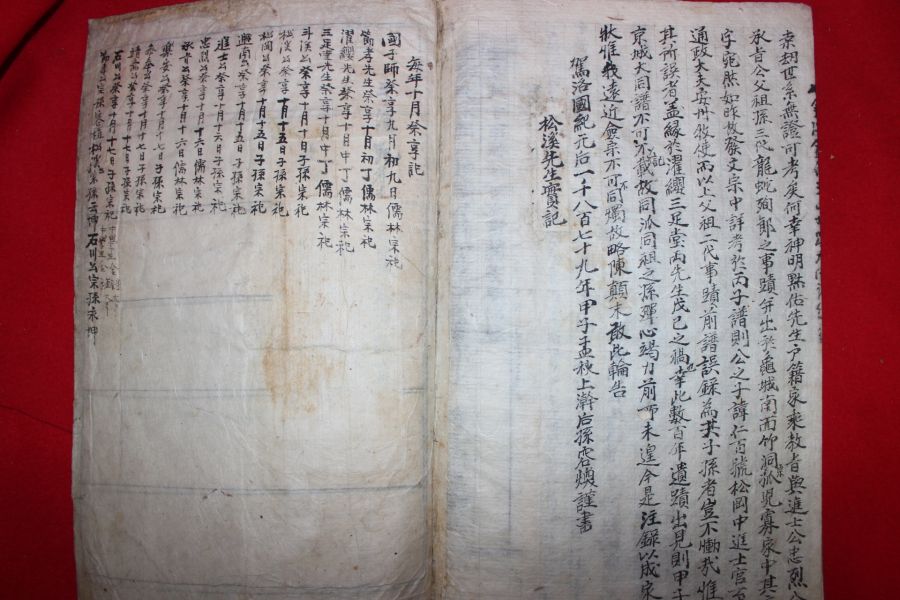 索拐世系無證可考矣何幸神明點佑先生戶籍家乘教旨與進士公忠烈公
承旨公父祖孫三代龍蛇殉節之事蹟并出於龜城南面竹洞孤兒寡家中其
字宛然如昨故發文宗中詳考於丙子譜則公之子諱仁百號松岡中進士官至
通政大夫安州牧使而以上父祖二代事蹟前譜誤錄為其子孫者豈不慟哉惟
其所誤者蓋緣於濯纓三足堂兩先生戊己之禍幸此數百年遺蹟出見則甲子
京城大同譜不可不載故同派同祖之孫殫心竭力前所未遑今是注錄以成家
狀惟我遠近僉宗不可不同燭故略陳顛末敢此輪告
駕洛國紀元后一千八百七十九年甲子孟秋上澣后孫容煥謹書
松溪先生實記
每年十月祭享記
國子師祭享九月初九日儒林宗祀
節孝先生祭享十月初丁儒林宗祀
濯纓先生祭享十月中丁儒林宗祀
三足堂先生祭享十月中丁儒林宗祀
斗溪公祭享十月十日子孫宗祀
松溪公祭享十月十五日子孫宗祀
松岡公祭享十月十五日子孫宗祀
公祭享十月十五日子孫宗祀
進士公祭享十月十六日子孫宗祀
忠烈公祭享十月十六日儒林宗祀
承旨公祭享十月十六日儒林宗祀
公祭享十月十七日子孫宗祀
公祭享十月十七日子孫宗祀
公祭享十月十七日子孫宗祀
石川公祭享十月十七日子孫宗祀
石川公宗孫永坤